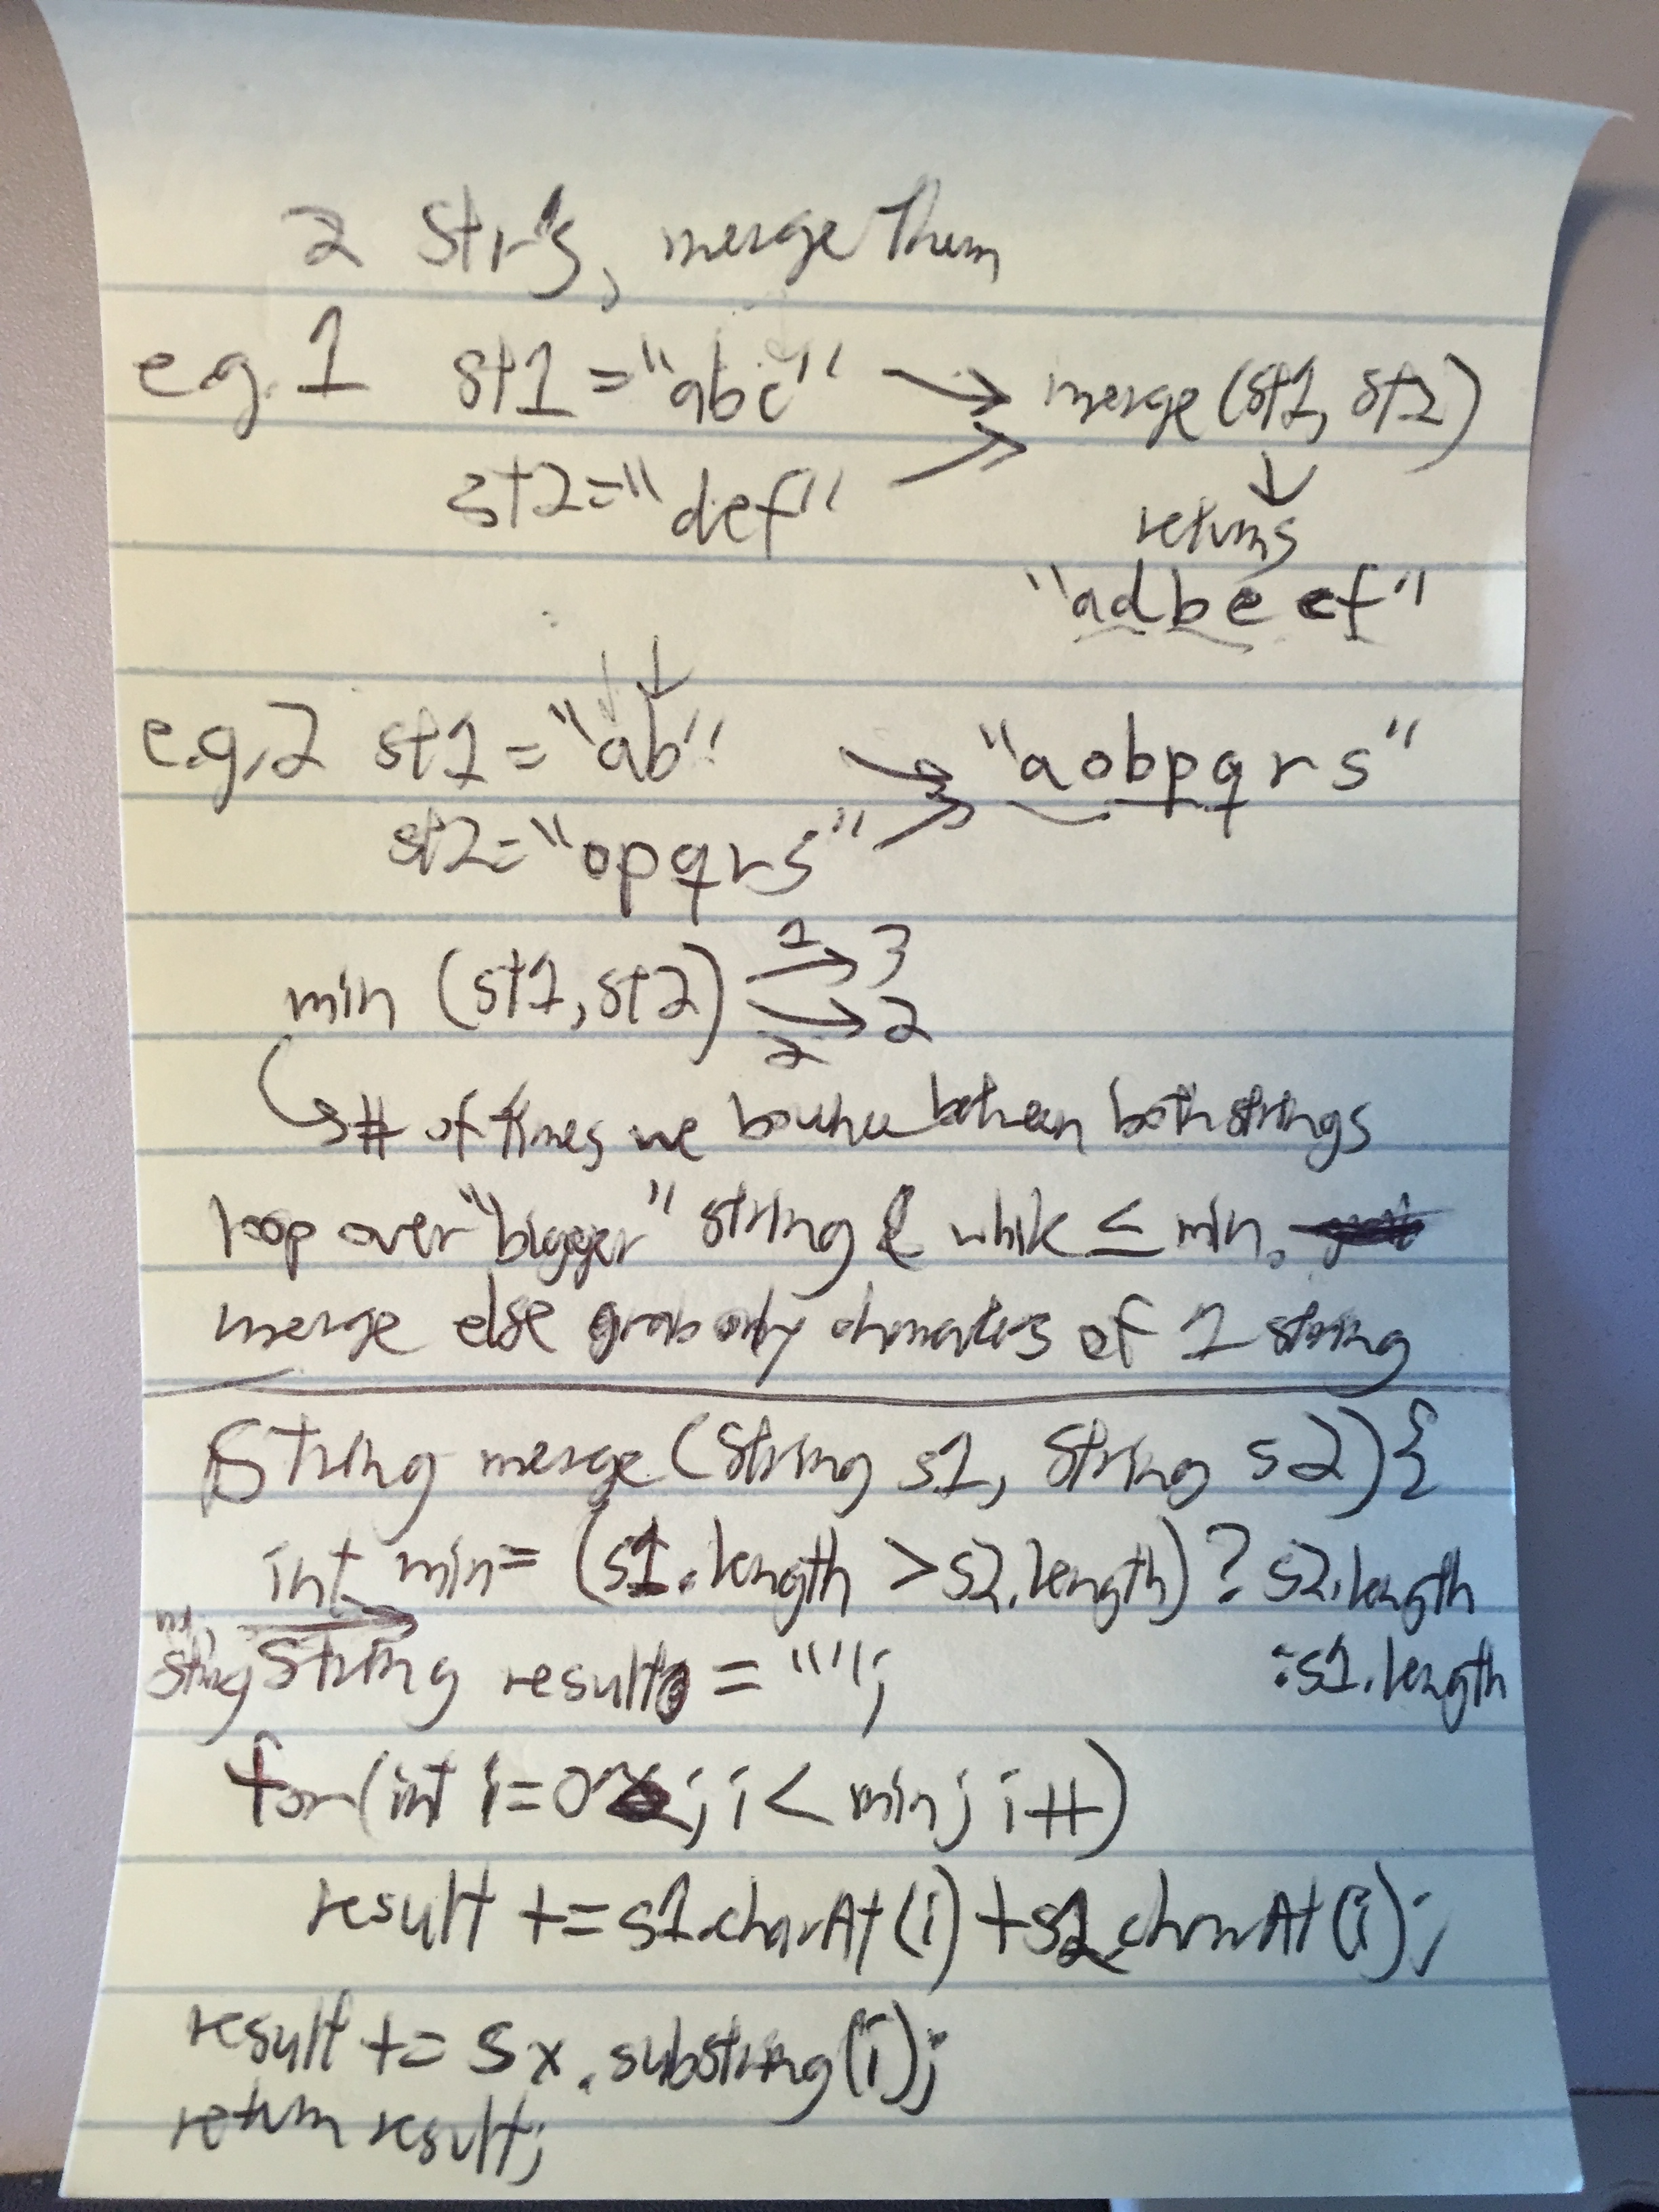 2 Str's, merge Them
e.g. 1 st1 = "abc" → merge (st1, st2)
st2 = "def" ↓
returns
"adbecf"
e.g. 2 st1 = "ab" → "aobpqrs"
st2 = "opqrs"
min (st1, st2) 1→ 3
2→ 2
↳ # of times we bounce between both strings
loop over "bigger" string & while ≤ min,
merge else grab only characters of 1 string
String merge (String s1, String s2) {
int min = (s1.length > s2.length) ? s2.length
: s1.length
String String result = "";
for (int i=0; i < min; i++)
result += s1.charAt(i) + s2.charAt(i);
result += sx.substring(i);
return result;